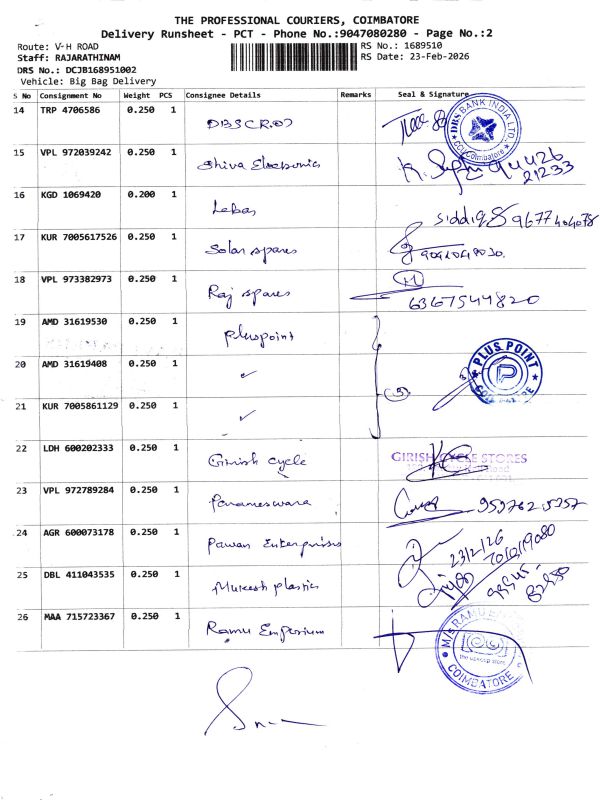 THE PROFESSIONAL COURIERS, COIMBATORE
Delivery Runsheet - PCT - Phone No.:9047080280 - Page No.:2
Route: V-H ROAD
RS No.: 1689510
Staff: RAJARATHINAM
RS Date: 23-Feb-2026
DRS No.: DCJB168951002
Vehicle: Big Bag Delivery
S No Consignment No Weight PCS Consignee Details Remarks Seal & Signature
14 TRP 4706586 0.250 1 DBSCR.07
DBS BANK INDIA LTD.
Coimbatore
15 VPL 972039242 0.250 1 Shiva Electronics
94426
21233
16 KGD 1069420 0.200 1 Lebas
Siddiq 9677404078
17 KUR 7005617526 0.250 1 Solar spares
18 VPL 973382973 0.250 1 Raj spares
6367544820
19 AMD 31619530 0.250 1 Pluspoint
20 AMD 31619408 0.250 1 ✓
PLUS POINT
P
21 KUR 7005861129 0.250 1 ✓
22 LDH 600202333 0.250 1 Girish cycle
GIRISH CYCLE STORES
23 VPL 972789284 0.250 1 Parameswara
24 AGR 600073178 0.250 1 Pawan Enterprises
23/2/26
25 DBL 411043535 0.250 1 Mukesh plastics
26 MAA 715723367 0.250 1 Ramu Emporium
M/s RAMU
COIMBATORE